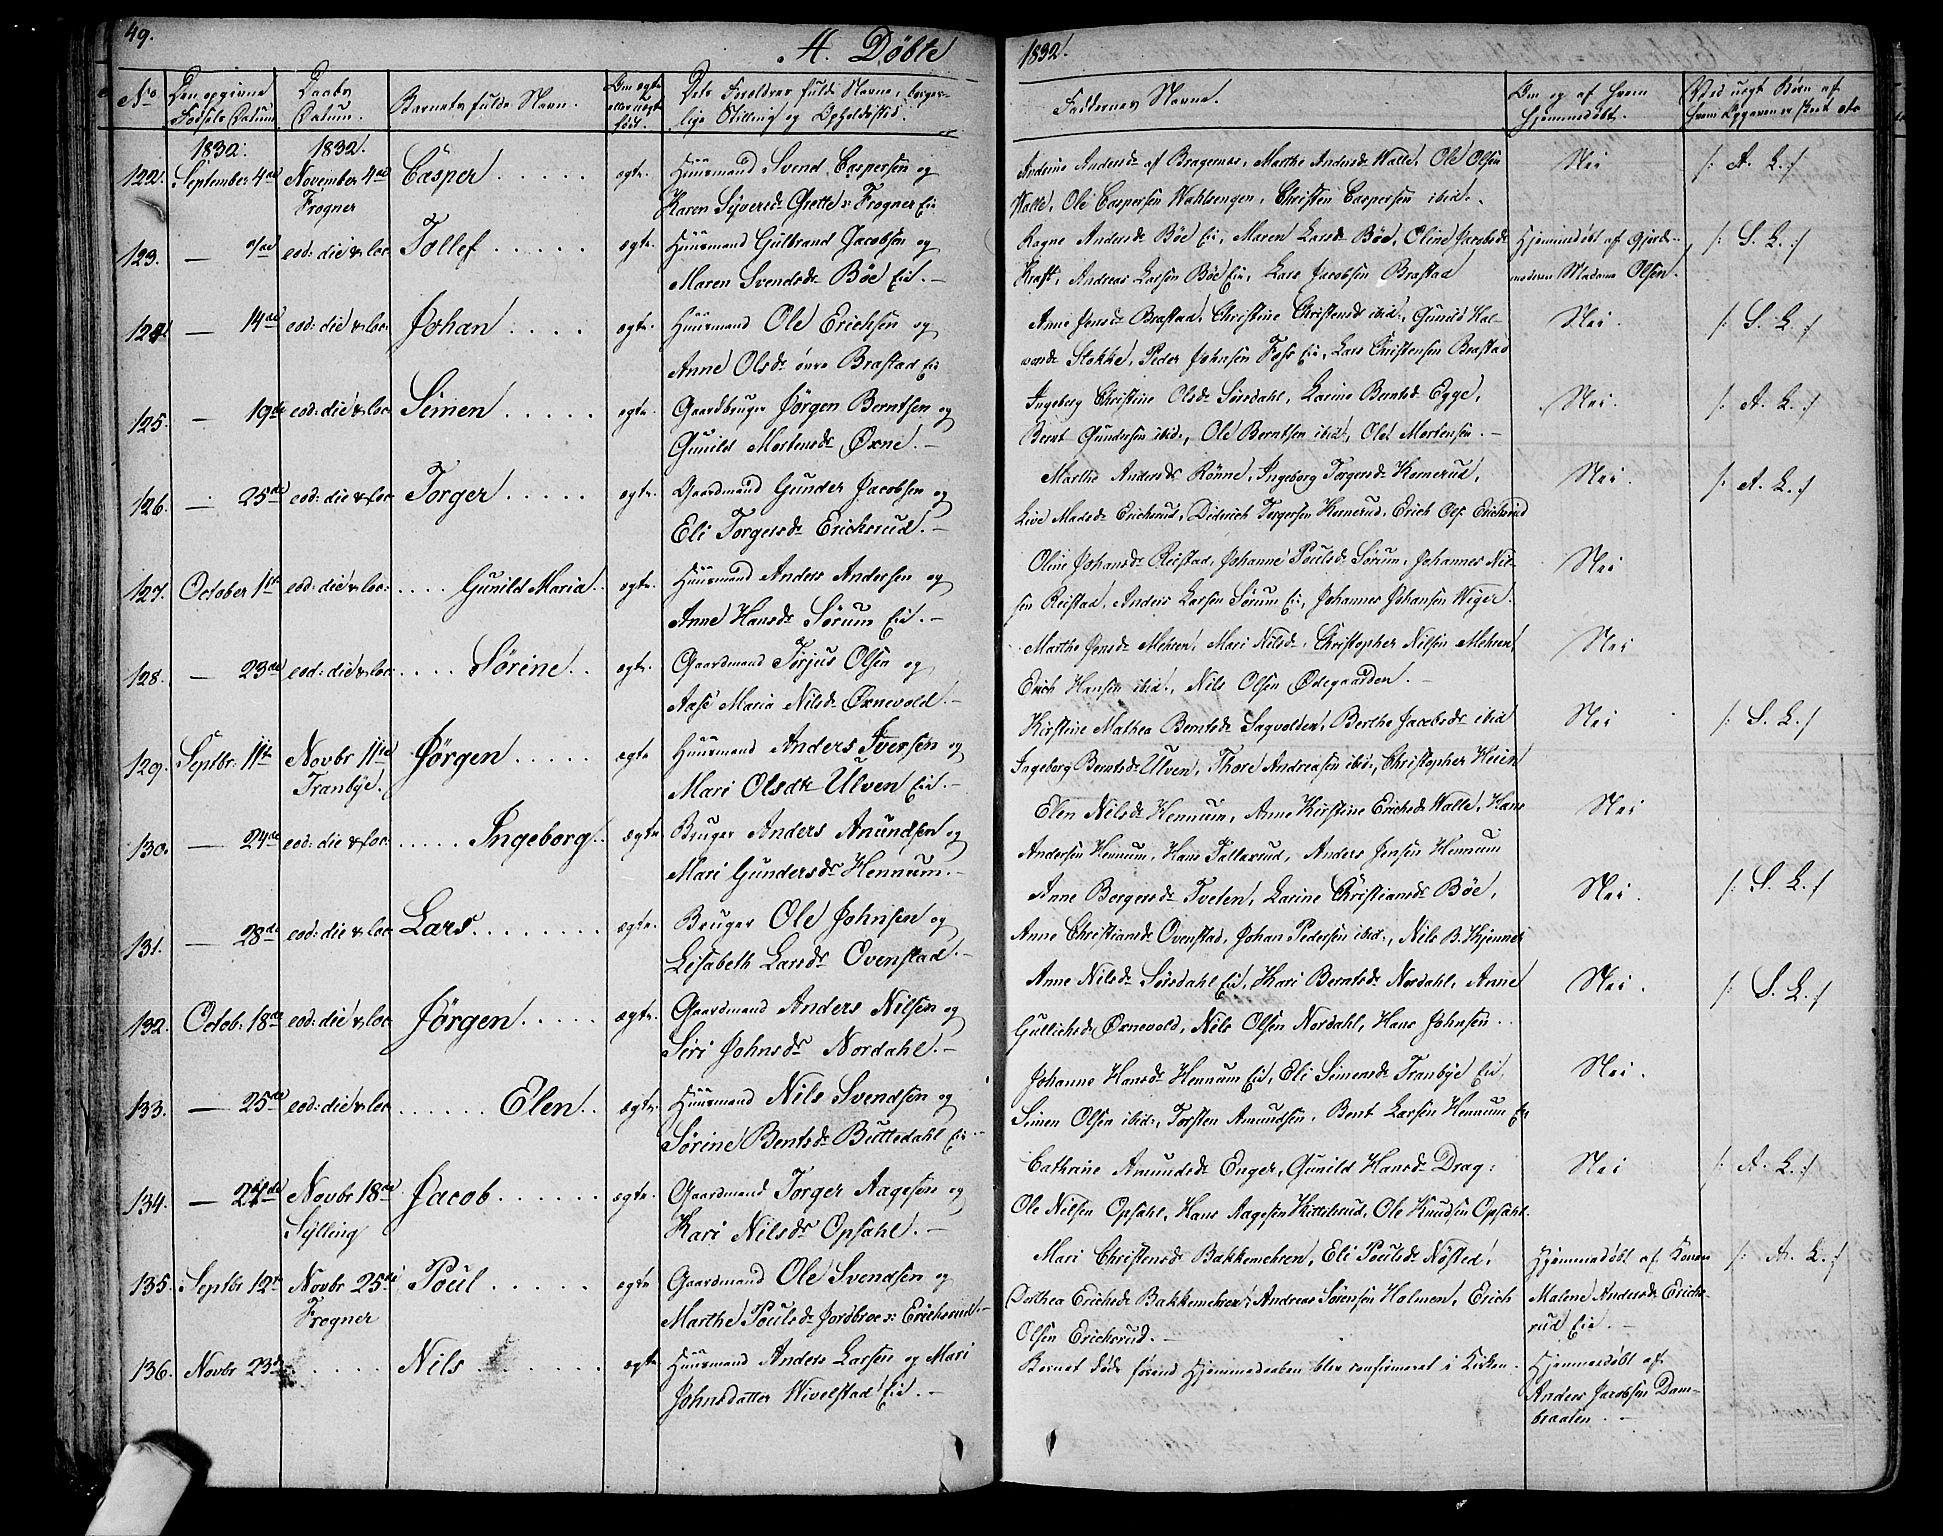 49.
A. Döbte
1832.
No
Den opgivne Fødsels Datum
Daabs Datum.
Barnets fulde Navn.
Om ægte eller uægte født.
Dets Forældres fulde Navne, borgerlige Stilling og Opholdssted.
Faddernes Navne.
Om og af hvem hjemmedöbt.
Ved uægt. Børn af
1832. 1832.
122. September 4de November 4de Frogner Casper ægte. Huusmand Svend Caspersen og
Karen Syversdr Grette v: Frogner Eie
Andrine Andersdr af Bragernes, Marthe Andersdr Walle, Ole Olsen
Walle, Ole Caspersen Wahlsengen, Christen Caspersen ibid.
Nei /: A. L. :/
123. — eod: die & loc: Tollef ægte. Huusmand Gulbrand Jacobsen og
Maren Svendsdr Böe Eie. —
Ragne Andersdr Böe Eie, Maren Larsdr Böe, Oline Jacobsdr
Kraft, Andreas Larsen Böe Eie, Lars Jacobsen Brastad
Hjemmedöbt af Gjordemoderen Madame Olsen. /: S. L. :/
124. — 14de eod: die & loc: Johan ægte. Huusmand Ole Erichsen og
Anne Olsdr övre Brastad Eie
Anne Jensdr Brastad, Christine Christensdr ibid, Gunild Halvorsdr
Stokke, Peder Johnsen Foss Eie, Lars Christensen Brastad
Nei. /: S. L. :/
125. — 19de eod: die & loc: Semen ægte. Gaardbruger Jörgen Berntsen og
Gunild Mortensdr Oxne. —
Ingeborg Christine Olsdr Sörsdahl, Larine Berntsdr Egge,
Bernt Gundersen ibid:, Ole Berntsen ibid:, Ole Mortensen. —
Nei. /: A. L. :/
126. — 25de eod: die & loc: Torger ægte. Gaardmand Gunder Jacobsen og
Eli Torgersdr Erichsrud. —
Marthe Andersdr Rönne, Ingeborg Torgersdr Hornerud,
Live Madsdr Erichsrud, Diderich Torgersen Hornerud, Erich Ols: Erichsrud
Nei. /: A. L. :/
127. October 1ste eod: die & loc: Gunild Maria ægte. Huusmand Anders Andersen og
Anne Hansdr Sørum Eie. —
Oline Johansdr Reistad, Johanne Poulsdr Sørum, Johannes Nilsen
Reistad, Anders Larsen Sørum Eie, Johannes Johansen Wiger.
Nei
128. — 23de eod: die & loc: Sörine ægte. Gaardmand Torjus Olsen og
Aase Maria Nilsdr Oxnevold. —
Marthe Jensdr Mehren, Mari Nilsdr, Christopher Nilsen Mehren,
Erich Hansen ibid:, Nils Olsen Ødegaarden. —
Nei
129. Septbr: 11te Novbr 11te Tranbye. Jörgen ægte Huusmand Anders Iversen og
Mari Olsdtr Ulven Eie. —
Kirstine Mathea Berntsdr Sagvolden, Berthe Jacobsdr ibid
Ingeborg Berntsdr Ulven, Thore Andreasen ibid:, Christopher Heien
Nei /: S. L. :/
130. — 24de eod: die & loc: Ingeborg ægte Bruger Anders Anundsen og
Mari Gundersdr Hennum. —
Elen Nilsdr Hennum, Anne Kirstine Erichsdr Walle, Hans
Andersen Hennum, Hans Tallaxrud, Anders Jensen Hennum
Nei
131. — 28de eod: die & loc: Lars ægte. Bruger Ole Johnsen og
Lisabeth Larsdr Ovenstad. —
Anne Borgersdr Tveten, Larine Christiansdr Böe,
Anne Christiansdr Ovenstad, Johan Pedersen ibid:, Nils B. Hjennes
Nei. /: S. L. :/
132. Octob: 18de eod: die & loc: Jörgen ægte. Gaardmand Anders Nilsen og
Siri Johnsdr Nordahl. —
Anne Nilsdr Sörsdahl Eie, Kari Berntsdr Nordahl, Anne
Gullichsdr Oxnevold, Nils Olsen Nordahl, Hans Johnsen.
Nei. /: S. L. :/
133. — 25de eod: die & loc: Elen ægte. Huusmand Nils Svendsen og
Sörine Bentsdr Buttedahl Eie. —
Johanne Hansdr Hennum Eie, Eli Simensdr Tranbye Eie,
Simen Olsen ibid:, Torsten Amundsen, Bent Larsen Hennum Eie
Nei.
134. — 27de Novbr 18de Sylling Jacob ægte. Gaardmand Torger Aagesen og
Kari Nilsdr Opsahl. —
Cathrine Amundsdr Enger, Gunild Hansdr Drag:
Ole Nilsen Opsahl, Hans Aagesen Kittilsrud, Ole Knudsen Opsahl.
Nei /: A. L. :/
135. Septbr 12te Novbr 25de Frogner Poul ægte Gaardmand Ole Svendsen og
Marthe Poulsdr Jordbroe v: Erichsrud. —
Mari Christensdr Bakkemehren, Eli Poulsdr Nøsted,
Dorthea Erichsdr Bakkemehren, Andreas Sörensen Holmen, Erich
Olsen Erichsrud. —
Hjemmedöbt af Konen
Malene Andersdr Erichsrud Eie. — /: A. L. :/
136. Novbr 23de Nils ægte Huusmand Anders Larsen og Mari
Johnsdatter Wivelstad Eie. —
Barnet døde förend Hjemmedaaben blev confirmeret i Kirken.
Hjemmedöbt af
Anders Jacobsen Dambraaten. —